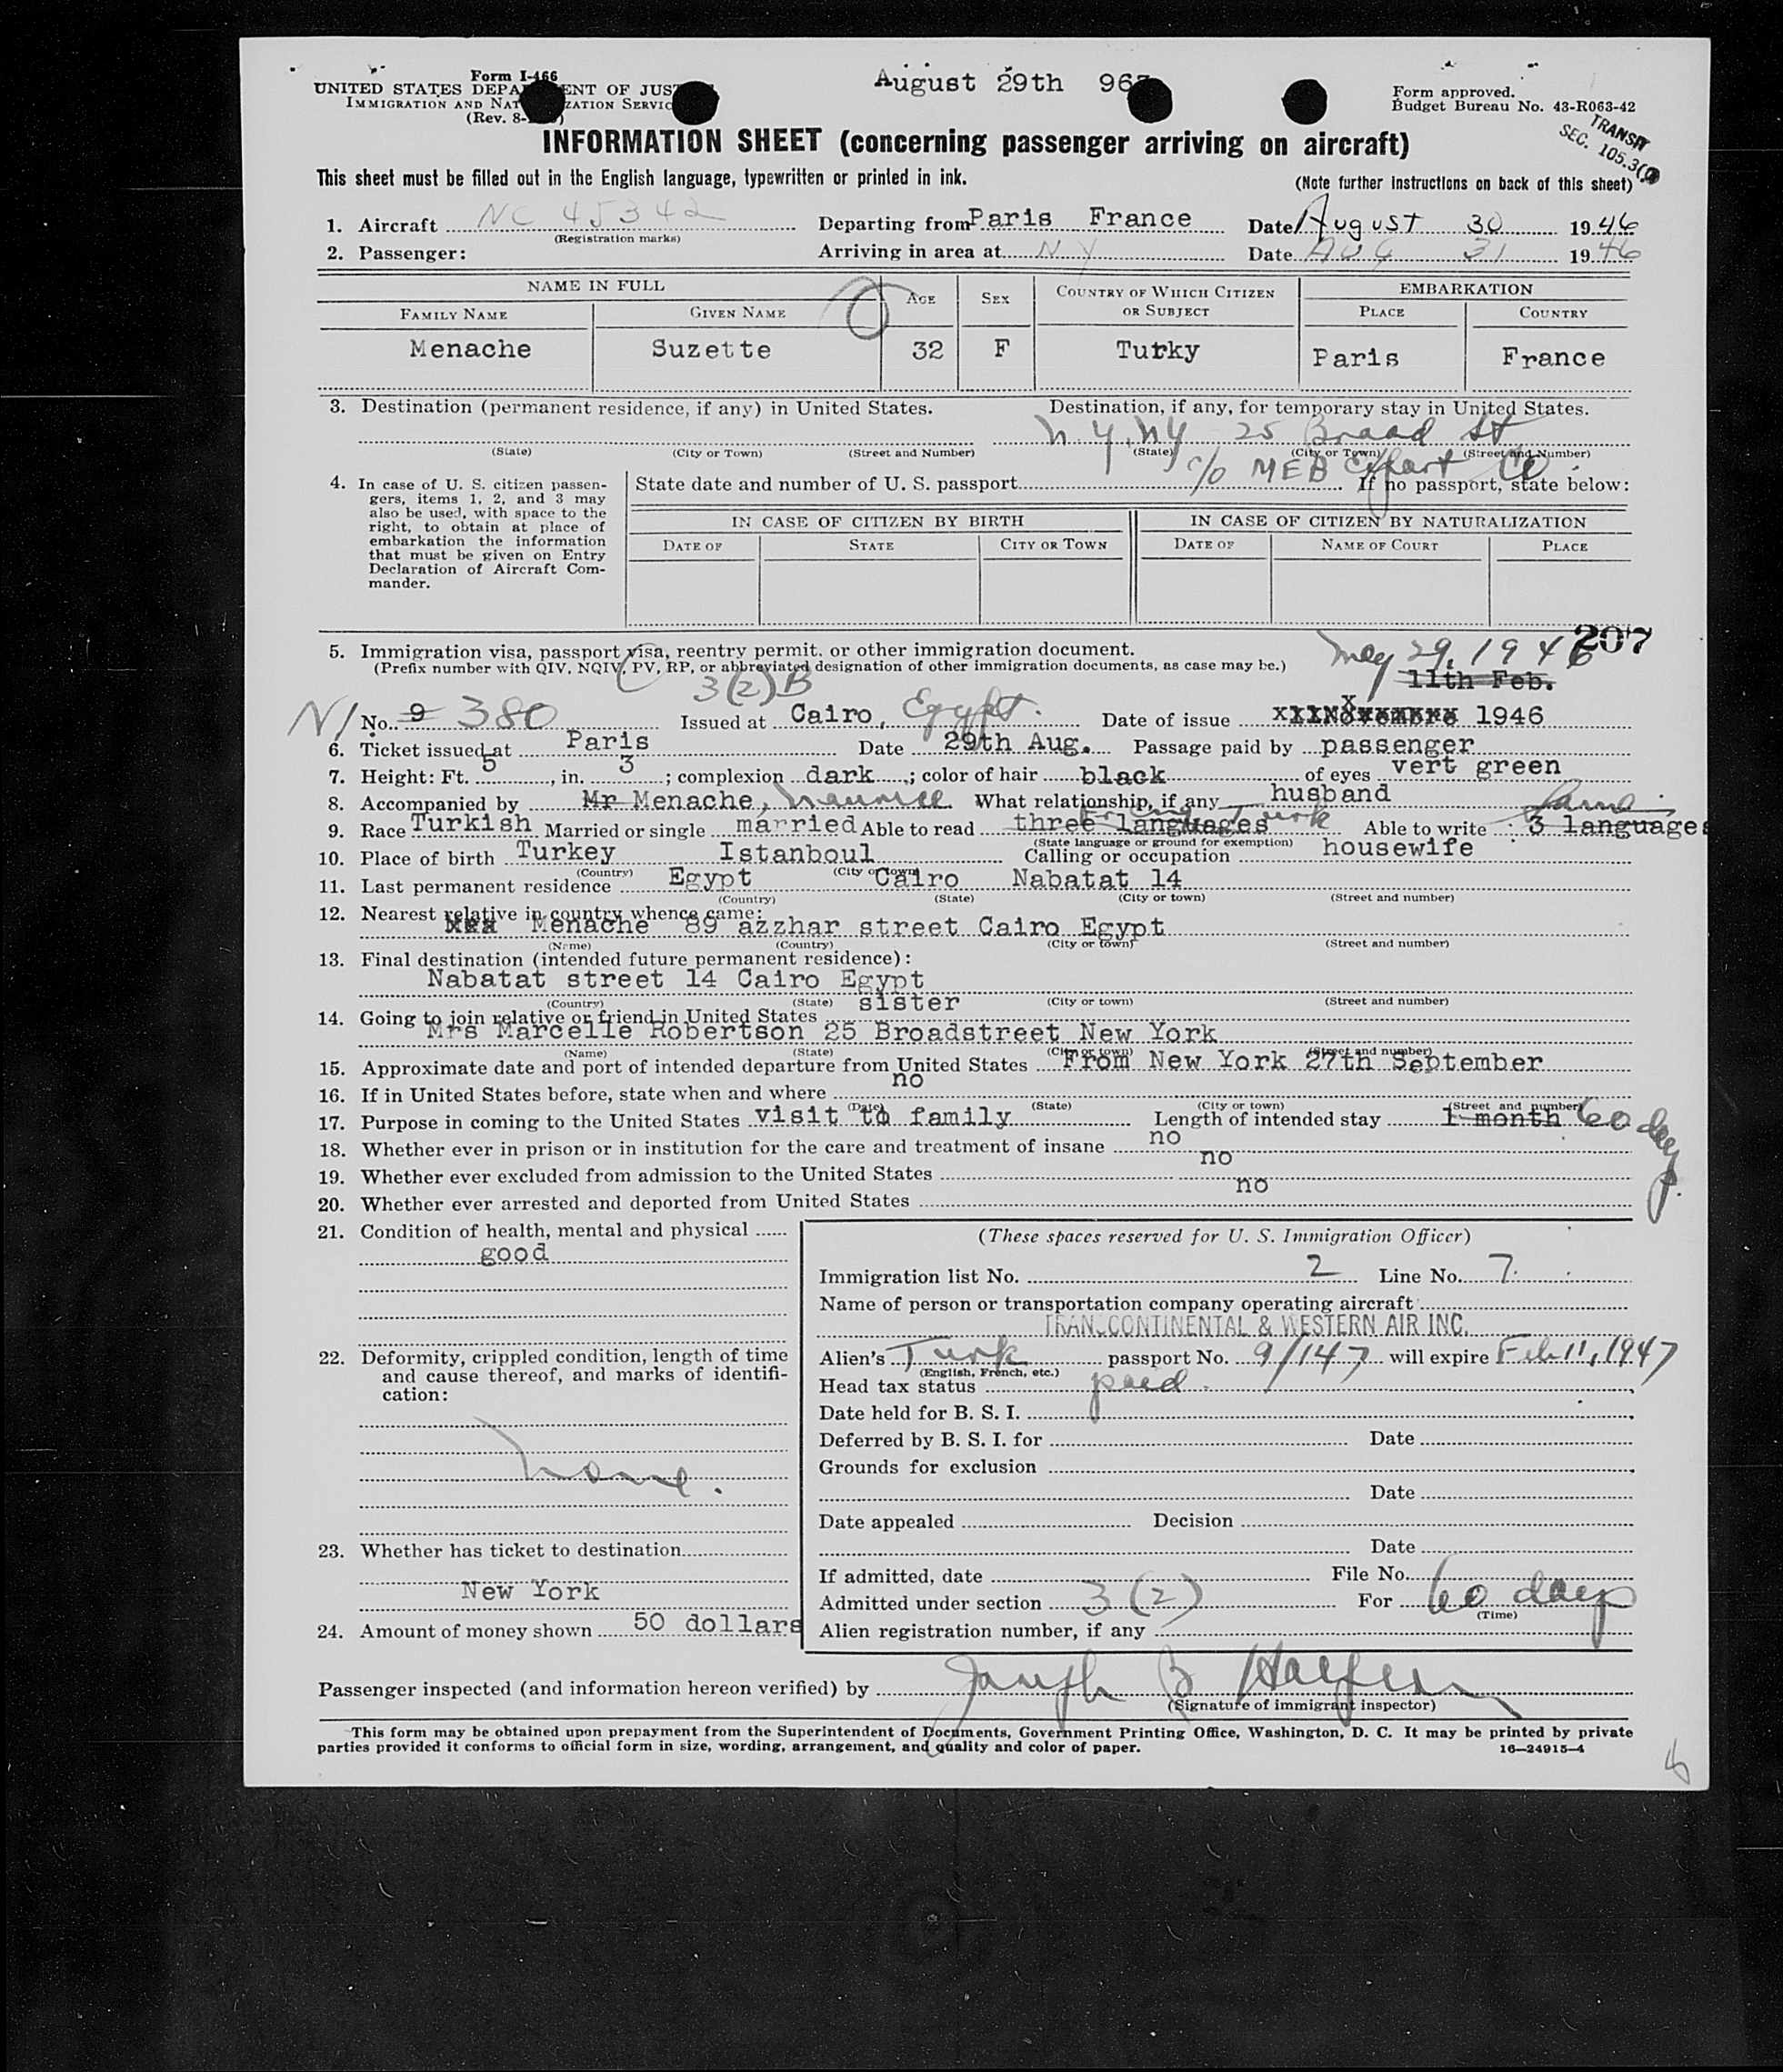 Form I-466
UNITED STATES DEPA ENT OF JUS
IMMIGRATION AND NAT ZATION SERVIC
(Rev. 8-
August 29th 96
Form approved.
Budget Bureau No. 43-R063-42
TRANSIT
SEC. 105.3(
INFORMATION SHEET (concerning passenger arriving on aircraft)
This sheet must be filled out in the English language, typewritten or printed in ink.
(Note further instructions on back of this sheet)
1. Aircraft NC 45342 Departing from Paris France Date August 30 1946
(Registration marks)
2. Passenger: Arriving in area at N Y Date AUG 31 1946
NAME IN FULL AGE SEX COUNTRY OF WHICH CITIZEN OR SUBJECT EMBARKATION
FAMILY NAME GIVEN NAME PLACE COUNTRY
Menache Suzette 32 F Turky Paris France
3. Destination (permanent residence, if any) in United States. Destination, if any, for temporary stay in United States.
N Y, N Y 25 Broad St
(State) (City or Town) (Street and Number) (State) (City or Town) (Street and Number)
c/o MEB Co
4. In case of U. S. citizen passen-
gers, items 1, 2, and 3 may
also be used, with space to the
right, to obtain at place of
embarkation the information
that must be given on Entry
Declaration of Aircraft Com-
mander.
State date and number of U. S. passport If no passport, state below:
IN CASE OF CITIZEN BY BIRTH IN CASE OF CITIZEN BY NATURALIZATION
DATE OF STATE CITY OR TOWN DATE OF NAME OF COURT PLACE
207
5. Immigration visa, passport visa, reentry permit, or other immigration document. May 29, 1946
(Prefix number with QIV, NQIV, PV, RP, or abbreviated designation of other immigration documents, as case may be.)
3(2)B 11th Feb.
No. 9 380 Issued at Cairo, Egypt. Date of issue 1946
6. Ticket issued at Paris Date 29th Aug. Passage paid by passenger
7. Height: Ft. 5, in. 3; complexion dark; color of hair black of eyes vert green
8. Accompanied by Mr Menache, Maurice What relationship, if any husband
9. Race Turkish Married or single married Able to read three languages Fr Eng Turk Able to write 3 languages same
(State language or ground for exemption)
10. Place of birth Turkey Istanboul Calling or occupation housewife
(Country) (City or town)
11. Last permanent residence Egypt Cairo Nabatat 14
(Country) (State) (City or town) (Street and number)
12. Nearest relative in country whence came:
Menache 89 azzhar street Cairo Egypt
(Name) (Country) (City or town) (Street and number)
13. Final destination (intended future permanent residence):
Nabatat street 14 Cairo Egypt
(Country) (State) (City or town) (Street and number)
14. Going to join relative or friend in United States sister
Mrs Marcelle Robertson 25 Broadstreet New York
(Name) (State) (City or town) (Street and number)
15. Approximate date and port of intended departure from United States From New York 27th September
16. If in United States before, state when and where no
(Date) (State) (City or town) (Street and number)
17. Purpose in coming to the United States visit to family Length of intended stay 1 month 60 days.
18. Whether ever in prison or in institution for the care and treatment of insane no
19. Whether ever excluded from admission to the United States no
20. Whether ever arrested and deported from United States no
21. Condition of health, mental and physical
good
22. Deformity, crippled condition, length of time
and cause thereof, and marks of identifi-
cation:
none.
23. Whether has ticket to destination
New York
24. Amount of money shown 50 dollars
(These spaces reserved for U. S. Immigration Officer)
Immigration list No. 2 Line No. 7.
Name of person or transportation company operating aircraft
TRANSCONTINENTAL & WESTERN AIR INC.
Alien's Turk passport No. 9/147 will expire Feb 11, 1947
(English, French, etc.)
Head tax status paid.
Date held for B. S. I.
Deferred by B. S. I. for Date
Grounds for exclusion
Date
Date appealed Decision
Date
If admitted, date File No.
Admitted under section 3(2) For 60 days
(Time)
Alien registration number, if any
Passenger inspected (and information hereon verified) by Joseph B
(Signature of immigrant inspector)
This form may be obtained upon prepayment from the Superintendent of Documents, Government Printing Office, Washington, D. C. It may be printed by private
parties provided it conforms to official form in size, wording, arrangement, and quality and color of paper.
16—24915-4